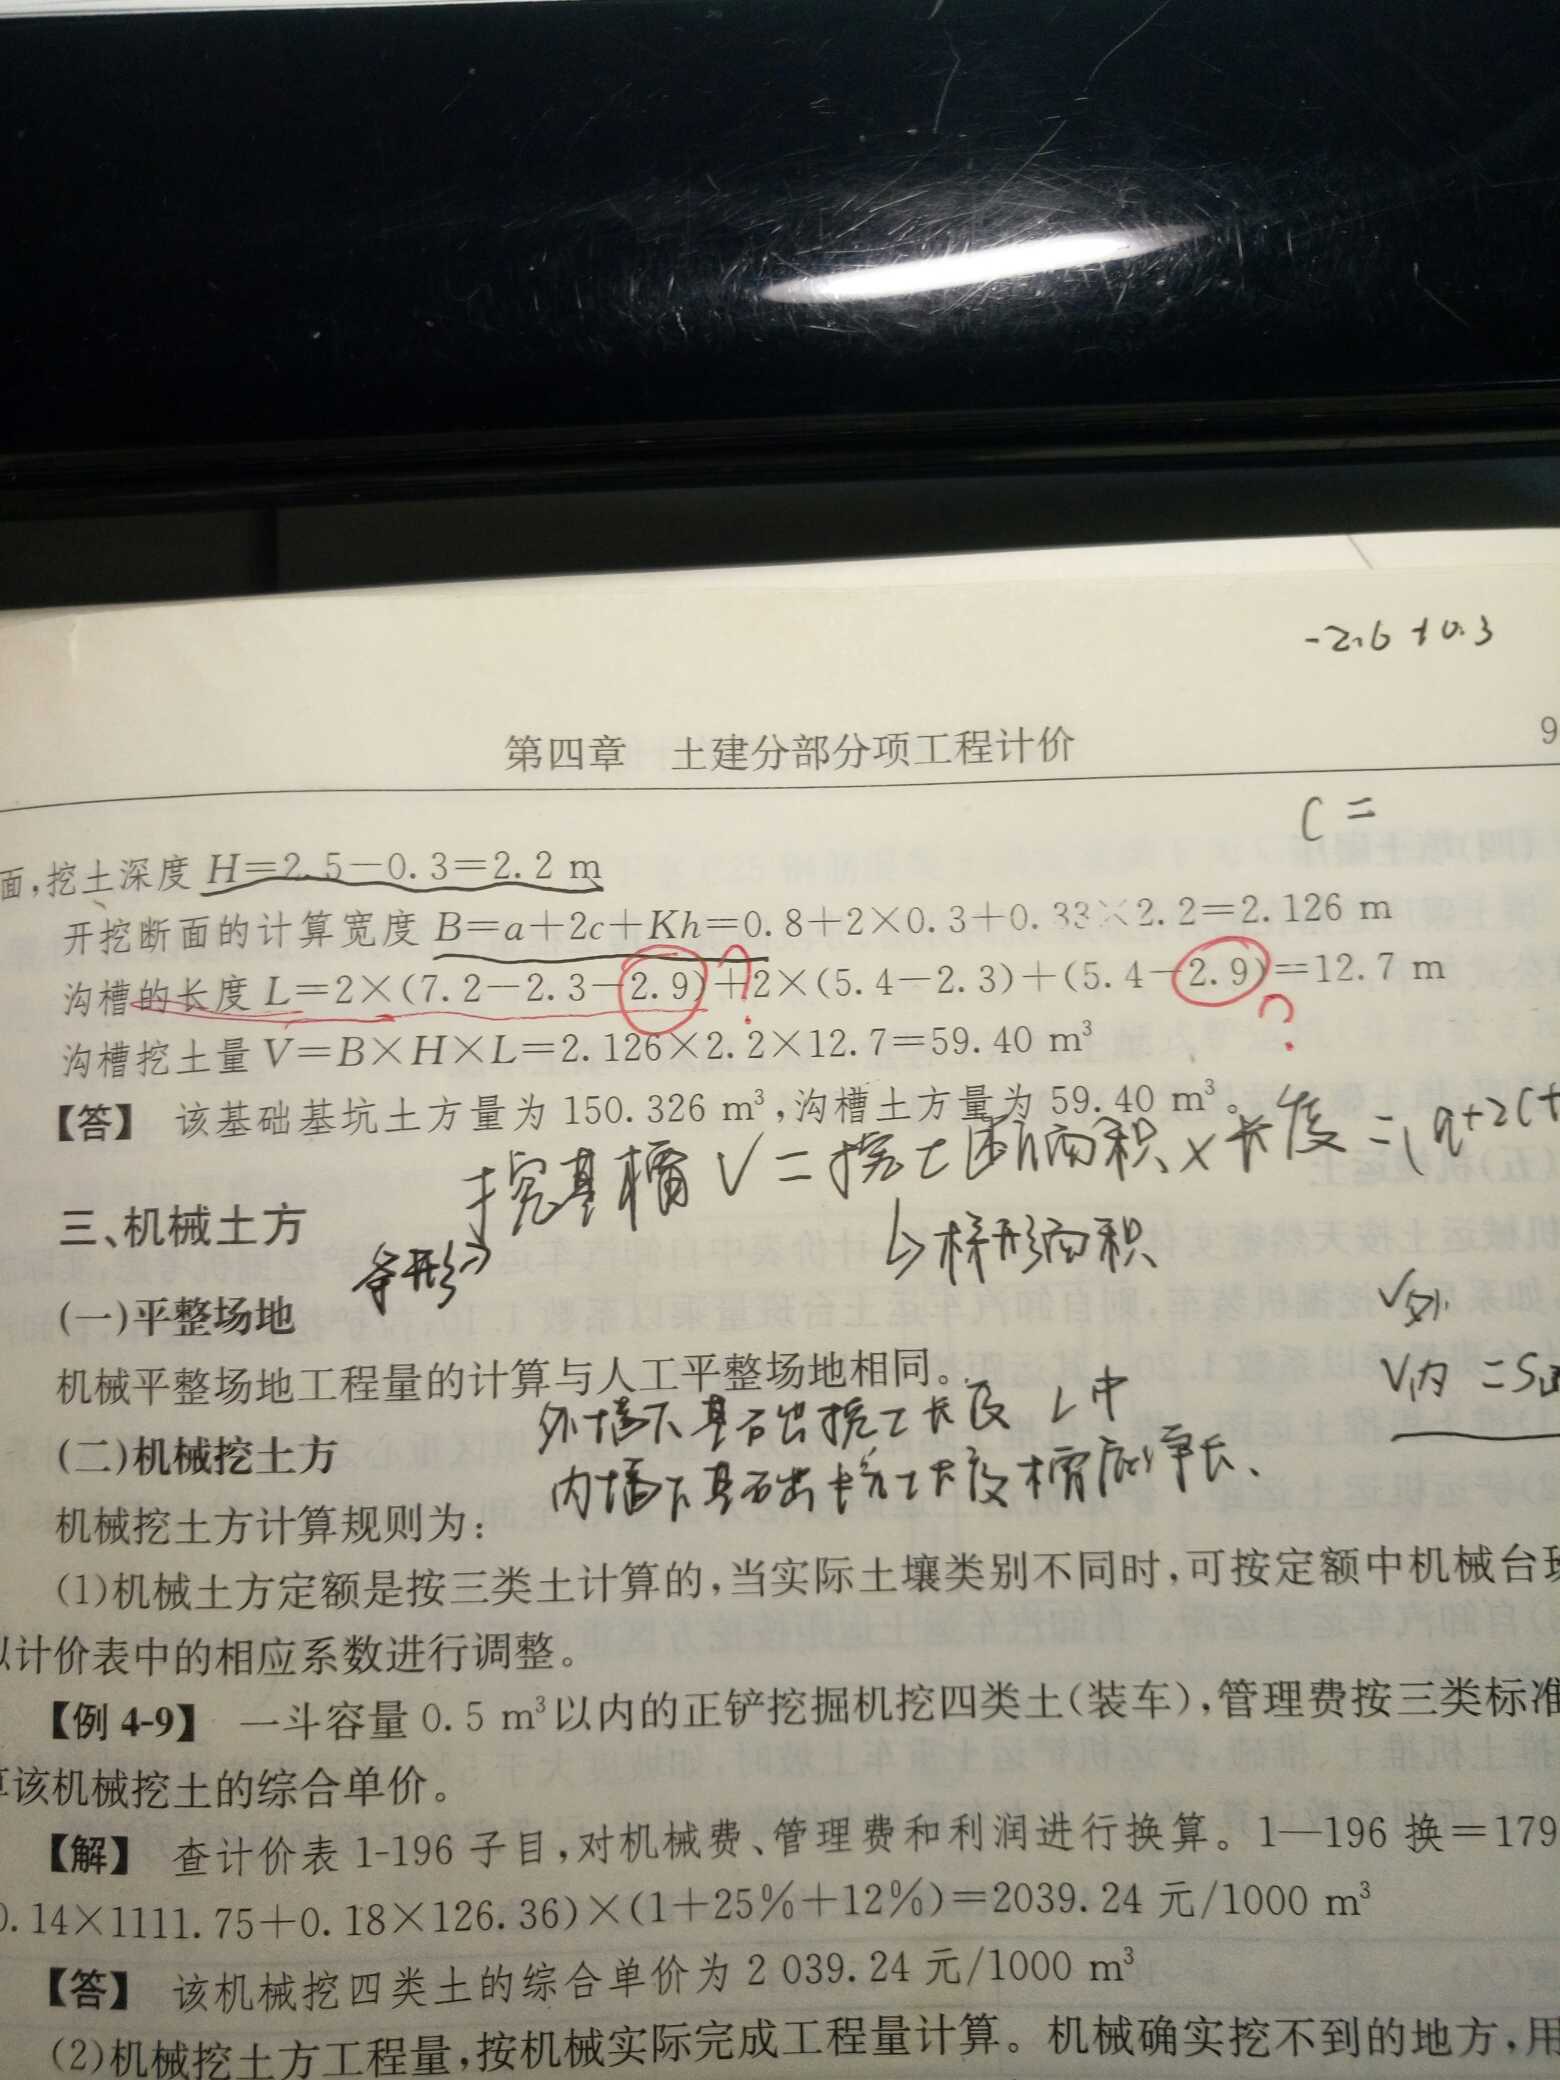 -2.6+0.3
第四章 土建分部分项工程计价 9
C =
面,挖土深度 H=2.5-0.3=2.2 m
开挖断面的计算宽度 B=a+2c+Kh=0.8+2×0.3+0.33×2.2=2.126 m
沟槽的长度 L=2×(7.2-2.3-2.9)+2×(5.4-2.3)+(5.4-2.9)=12.7 m
? ?
沟槽挖土量 V=B×H×L=2.126×2.2×12.7=59.40 m³
【答】 该基础基坑土方量为 150.326 m³,沟槽土方量为 59.40 m³。
挖基槽 V = 挖土断面积 × 长度 = (a+2c+
三、机械土方
条形
↳梯形面积
(一)平整场地
V外
机械平整场地工程量的计算与人工平整场地相同。
V内 = S
外墙下基础挖土长度 L中
(二)机械挖土方
内墙下基础挖土长度槽底净长、
机械挖土方计算规则为:
(1)机械土方定额是按三类土计算的,当实际土壤类别不同时,可按定额中机械台班
以计价表中的相应系数进行调整。
【例 4-9】 一斗容量 0.5 m³以内的正铲挖掘机挖四类土(装车),管理费按三类标准
算该机械挖土的综合单价。
【解】 查计价表 1-196 子目,对机械费、管理费和利润进行换算。1—196 换=179
0.14×1111.75+0.18×126.36)×(1+25%+12%)=2039.24 元/1000 m³
【答】 该机械挖四类土的综合单价为 2 039.24 元/1000 m³
(2)机械挖土方工程量,按机械实际完成工程量计算。机械确实挖不到的地方,用